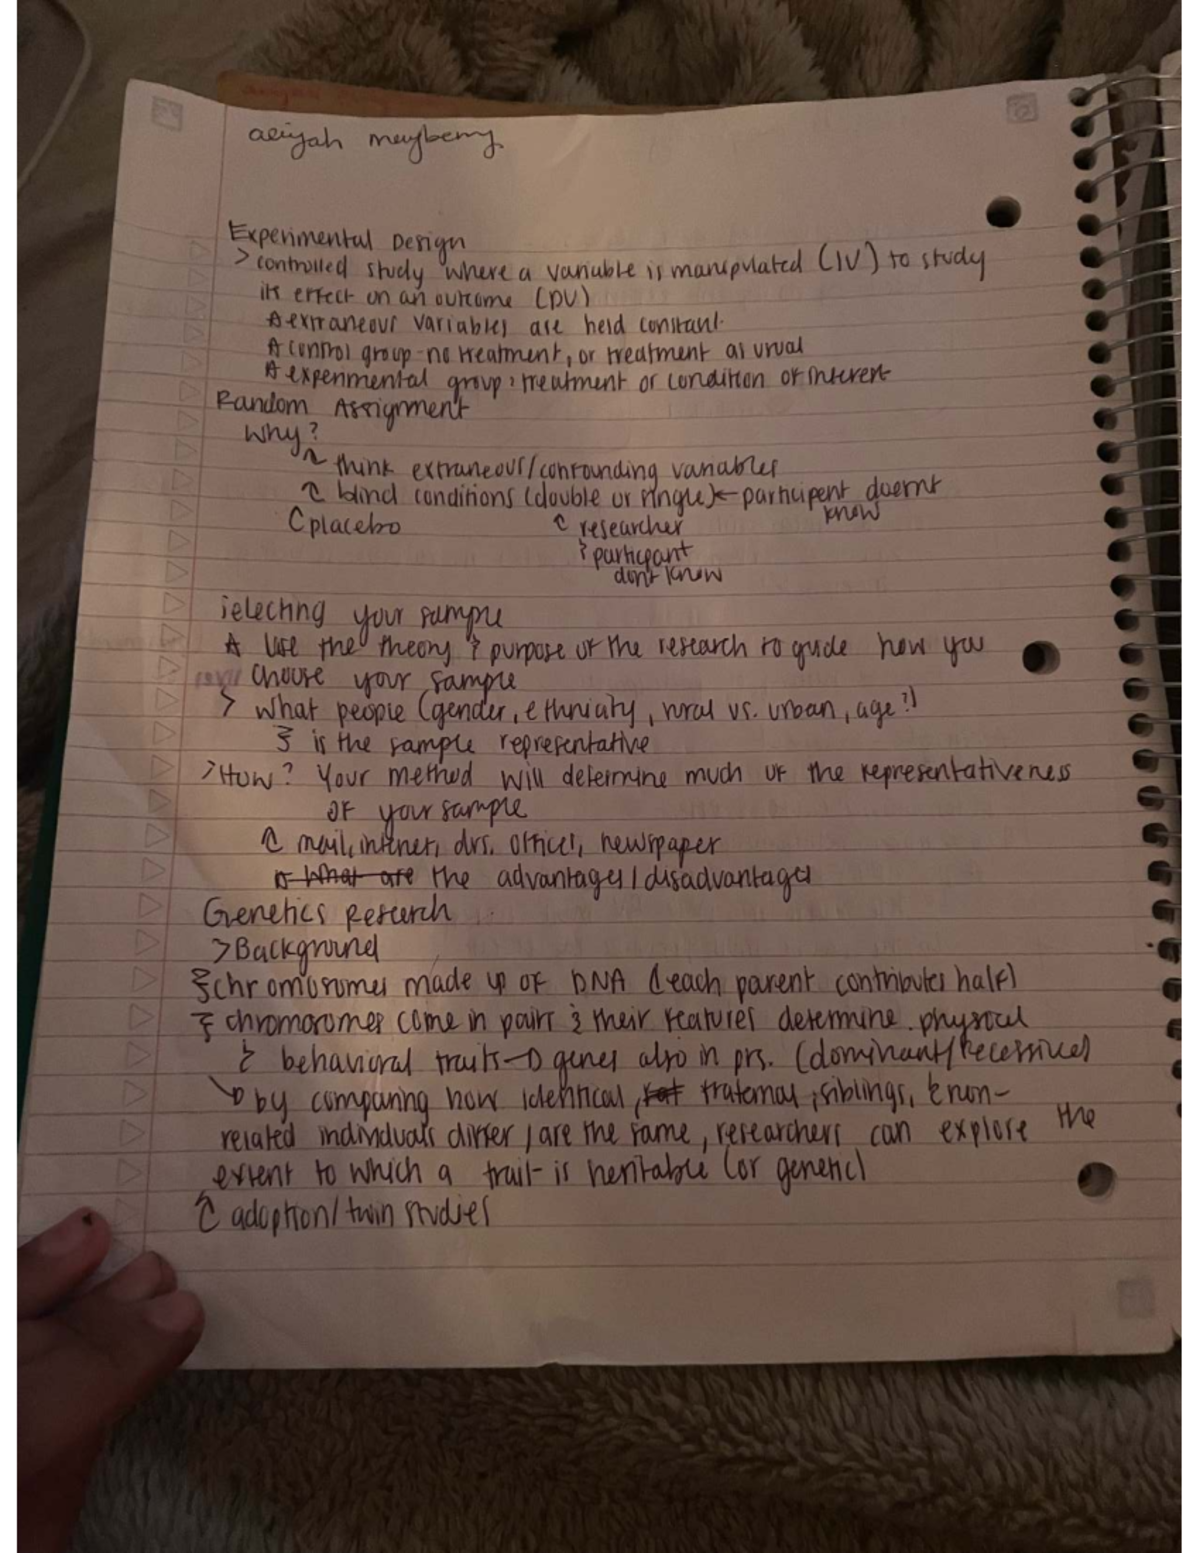 aeiyah mayberry
Experimental Design
> controlled study where a variable is manipulated (IV) to study
its effect on an outcome (DV)
extraneous variables are held constant.
control group - no treatment, or treatment as usual
experimental group: treatment or condition of interest
Random Assignment
Why?
think extraneous/confounding variables
blind conditions (double or single) ← participent doesnt
know
placebo
researcher
& participant
don't know
selecting your sample
use the theory & purpose of the research to guide how you
choose your sample
> what people (gender, ethnicity, rural vs. urban, age?)
is the sample representative
> How? Your method will determine much of the representativeness
of your sample
mail, internet, drs. offices, newspaper
What are the advantages/disadvantages
Genetics Research
> Background
chromosomes made up of DNA (each parent contributes half)
chromosomes come in pairs & their features determine physical
& behavioral traits → genes also in prs. (dominant/recessive)
by comparing how identical, fraternal, siblings, & non-
related individuals differ / are the same, researchers can explore the
extent to which a trait is heritable (or genetic)
adoption/twin studies